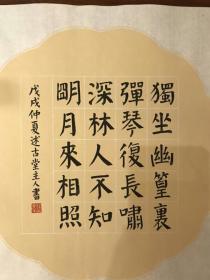 獨坐幽篁裏
彈琴復長嘯
深林人不知
明月來相照
戊戌仲夏述古堂主人書